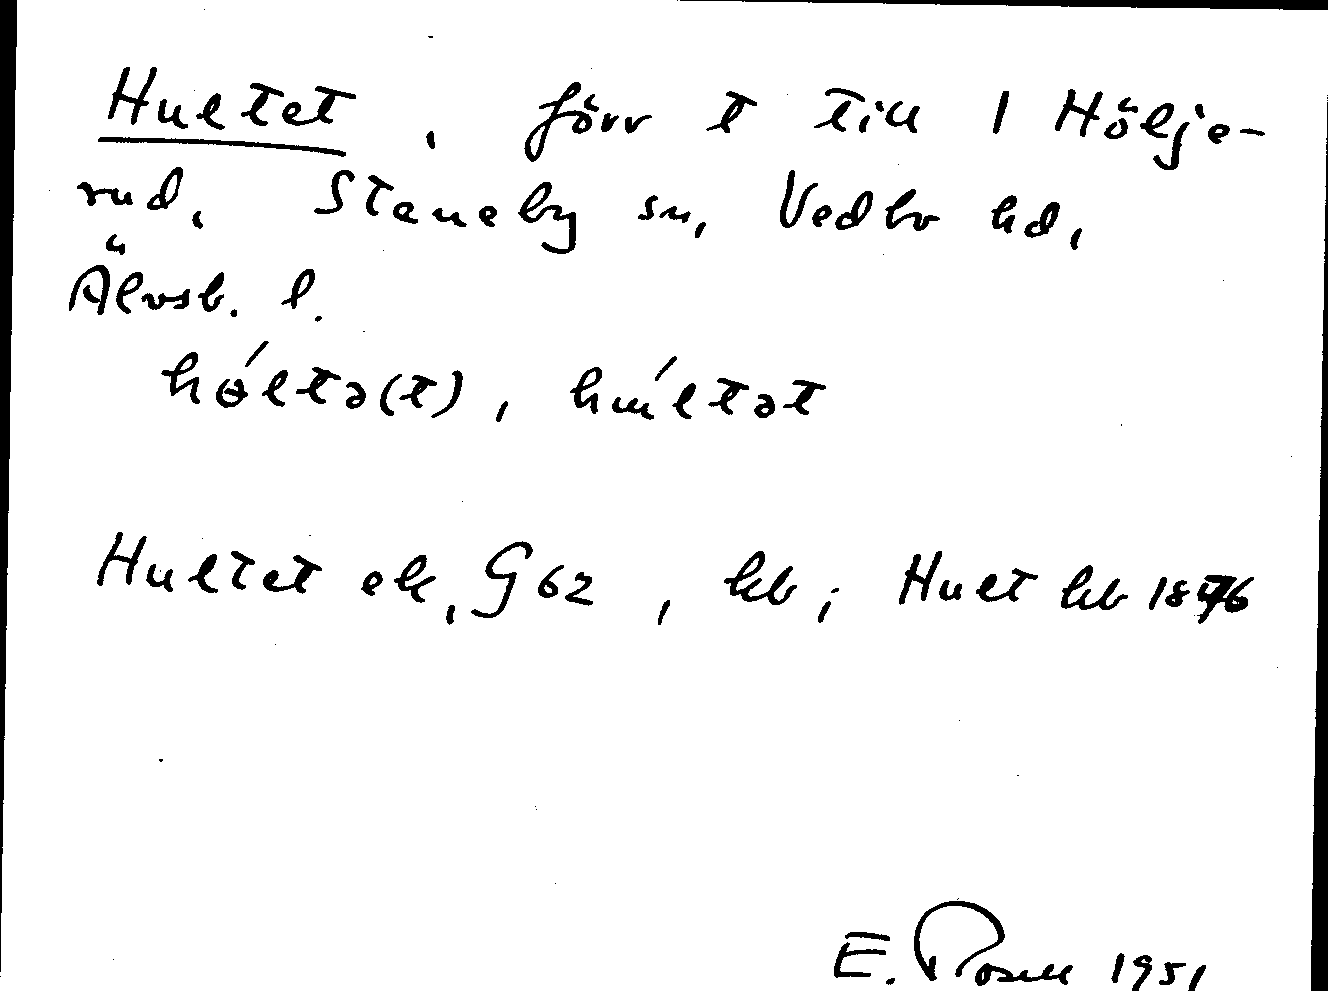 Hultet, förr t till 1 Hölje-
rud, Steneby sn, Vedbo hd,
Älvsb. l.
hɵ́ltə(t), húltət
Hultet ek, G62, kb; Hult kb 1876
E. Rosell 1951